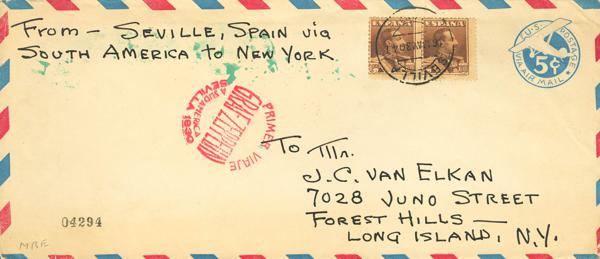 From — Seville, Spain via
South America to New York
ESPAÑA ESPAÑA
SEVILLA
U.S. POSTAGE
5¢
VIA AIR MAIL
PRIMER VIAJE
GRAF ZEPPELIN
A SUDAMERICA
SEVILLA 1930
To Mr.
J.C. van Elkan
7028 Juno Street
Forest Hills —
Long Island, N.Y.
04294
MBE